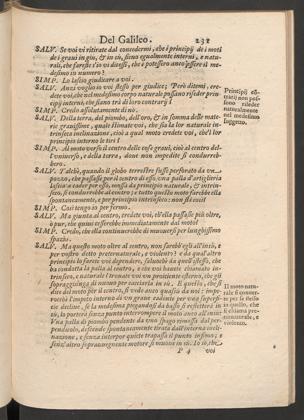 Del Galileo. 231
SALV. Se voi vi ritirate dal concedermi, che i principij de i moti
de i gravi in giu, & in sù, sieno egualmente interni, e natu-
rali, che sareste s'io vi dicessi, che e' potessero anco essere il me-
desimo in numero?
SIMP. Lo lascio giudicare a voi.
SALV. Anzi voglio io voi stesso per giudice; Però ditemi, cre-
dete voi, che nel medesimo corpo naturale possano riseder prin-
cipij interni, che siano trà di loro contrarij?
SIMP. Credo assolutamente di nò.
SALV. Della terra, del piombo, dell'oro, & in somma delle mate-
rie gravissime, quale stimate voi, che sia la lor naturale in-
trinseca inclinazione, cioè a qual moto credete voi, che'l lor
principio interno le tiri?
SIMP. Al moto verso il centro delle cose gravi, cioè al centro del-
l'universo, e della terra, dove non impedite si condurreb-
bero.
SALV. Talchè, quando il globo terrestre fusse perforato da un
pozzo, che passasse per il centro di esso, una palla d'artiglieria
lasciata cader per esso, mossa da principio naturale, & intrin-
seco, si condurrebbe al centro; e tutto questo moto farebbe ella
spontaneamente, e per principio intrinseco: non stà così?
SIMP. Così tengo io per fermo.
SALV. Ma giunta al centro, credete voi, ch'ella passasse più oltre,
ò pur, che quivi cesserebbe immediatamente dal moto?
SIMP. Credo, che ella continuerebbe di muoversi per lunghissimo
spazio.
SALV. Ma questo moto oltre al centro, non sarebb'egli all'insù, e
per vostro detto preternaturale, e violento? e da qual'altro
principio lo farete voi dependere, salvochè da quell'istesso, che
ha condotta la palla al centro, e che voi havete chiamato in-
trinseco, e naturale? trovate voi un proiciente esterno, che gli
sopraggiunga di nuovo per cacciarla in sù. E questo, che si
dice del moto per il centro, si vede anco quassù da noi: impe-
rocchè l'impeto interno di un grave cadente per una superfi-
cie declive, se la medesima piegandosi da basso si refletterà in
sù, lo porterà senza punto interrompere il moto anco all'insù.
Una palla di piombo pendente da uno spago rimossa dal per-
pendicolo, descende spontaneamente tirata dall'interna incli-
nazione, e senza interpor quiete trapassa il punto infimo; e
senz'altro sopravvegnente motore si muove in sù. Io sò, che
P 4 voi
Principij cō-
trarij non pos-
sono riseder
naturalmente
nel medesimo
soggetto.
Il moto natu-
rale si conver-
te per se stesso
in quello, che
si chiama pre-
ternaturale, e
violento.